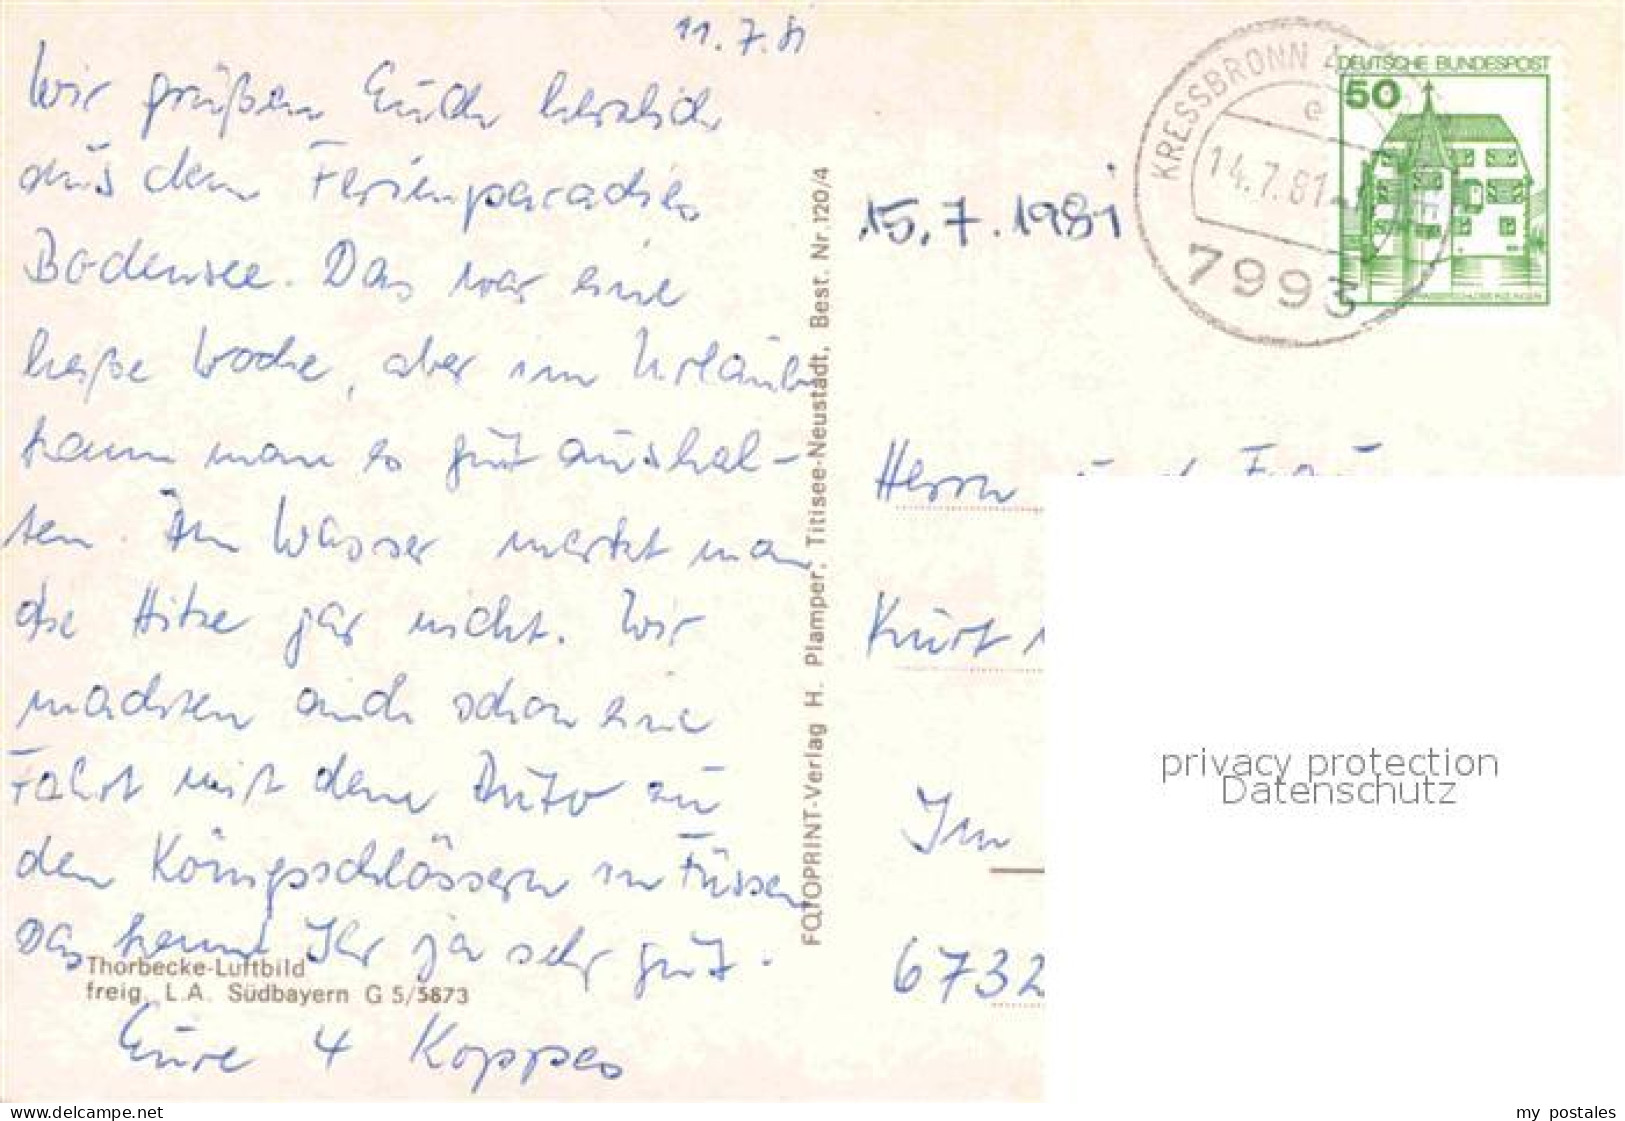 11.7.81
Wir grüßen Euch herzlich
aus dem Ferienparadies
Bodensee. Das war eine
heiße Woche, aber im Urlaub
kann man es gut aushal-
ten. Im Wasser merkt man
die Hitze gar nicht. Wir
machten auch schon eine
Fahrt mit dem Auto zu
den Königsschlössern in Füssen
Das kennt Ihr ja sehr gut.
Eure 4 Koppes
Thorbecke-Luftbild
freig. L.A. Südbayern G 5/5873
FOTOPRINT-Verlag H. Plamper, Titisee-Neustadt, Best. Nr. 120/4
15.7.1981
KRESSBRONN
e
14.7.81
7993
DEUTSCHE BUNDESPOST
50
WASSERSCHLOSS INZLINGEN
Herrn und Frau
Kurt
Im
6732
privacy protection
Datenschutz
www.delcampe.net
my_postales